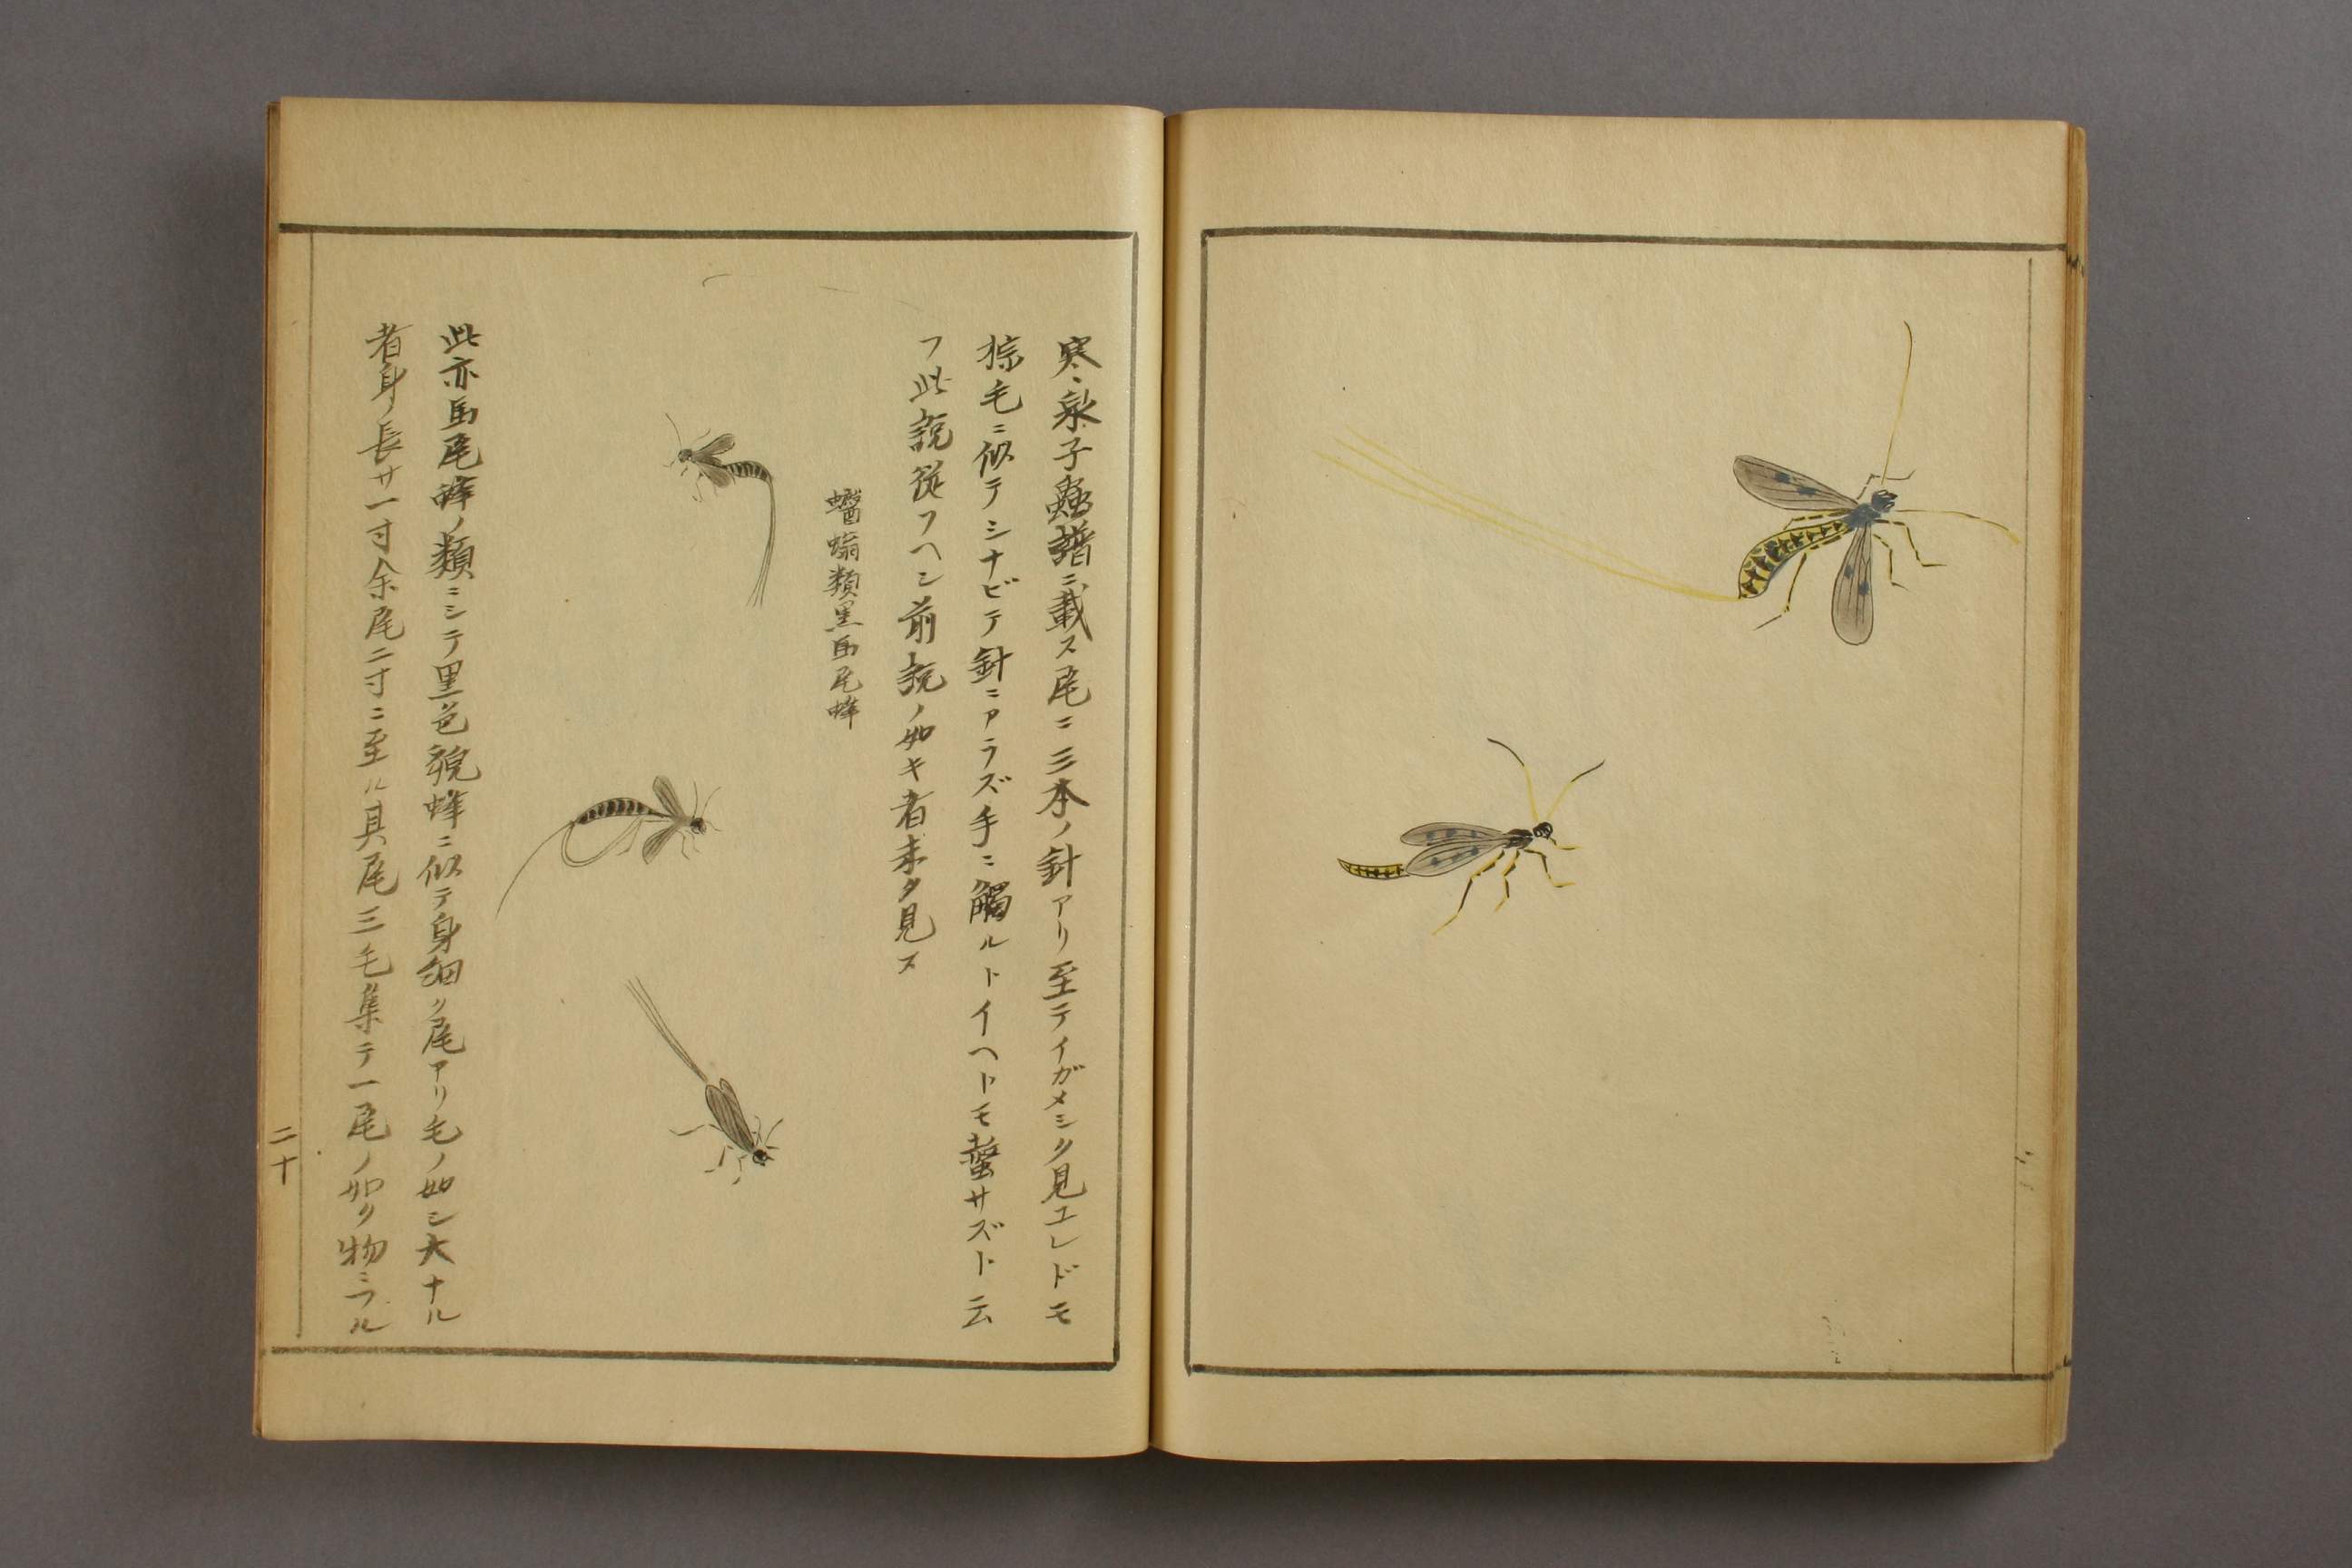 寒泉子蟲譜ニ載ス尾ニ三本ノ針アリ至テイガメシク見エレドモ
棕毛ニ似テシナビテ針ニアラズ手ニ觸ルトイヘトモ螫サズト云
フ此説従フヘシ前説ノ如キ者未タ見ス
蠮螉類黒馬尾蜂
此亦馬尾蜂ノ類ニシテ黒色貌蜂ニ似テ身細ク尾アリ毛ノ如シ大ナル
者身ノ長サ一寸余尾二寸ニ至ル其尾三毛集テ一尾ノ如ク物ニフル
二十